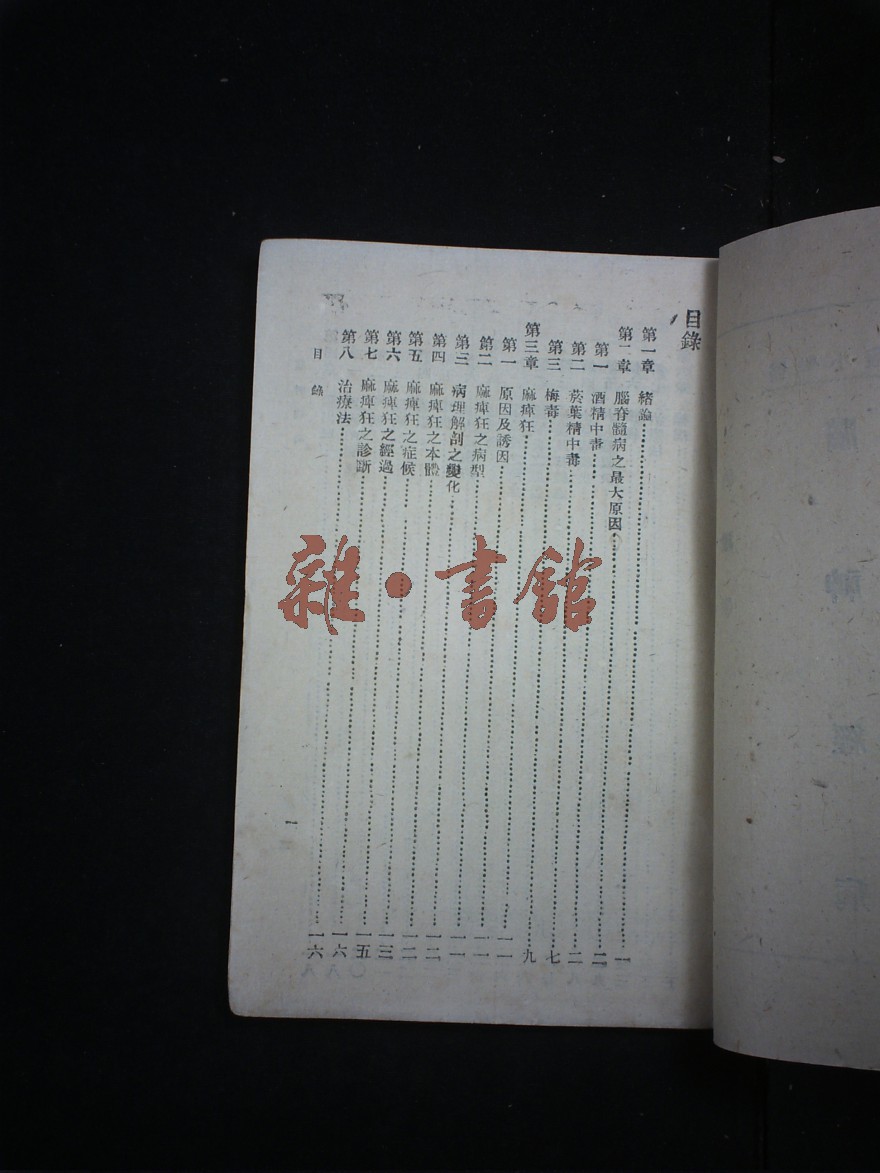 目錄
第一章 緒論 一
第二章 腦脊髓病之最大原因 二
第一 酒精中毒 二
第二 菸葉精中毒 七
第三 梅毒 九
第三章 麻痺狂 一一
第一 原因及誘因 一一
第二 麻痺狂之病型 一一
第三 病理解剖之變化 一二
第四 麻痺狂之本體 一二
第五 麻痺狂之症候 一三
第六 麻痺狂之經過 一五
第七 麻痺狂之診斷 一六
第八 治療法 一六
目錄
一
雜·書館